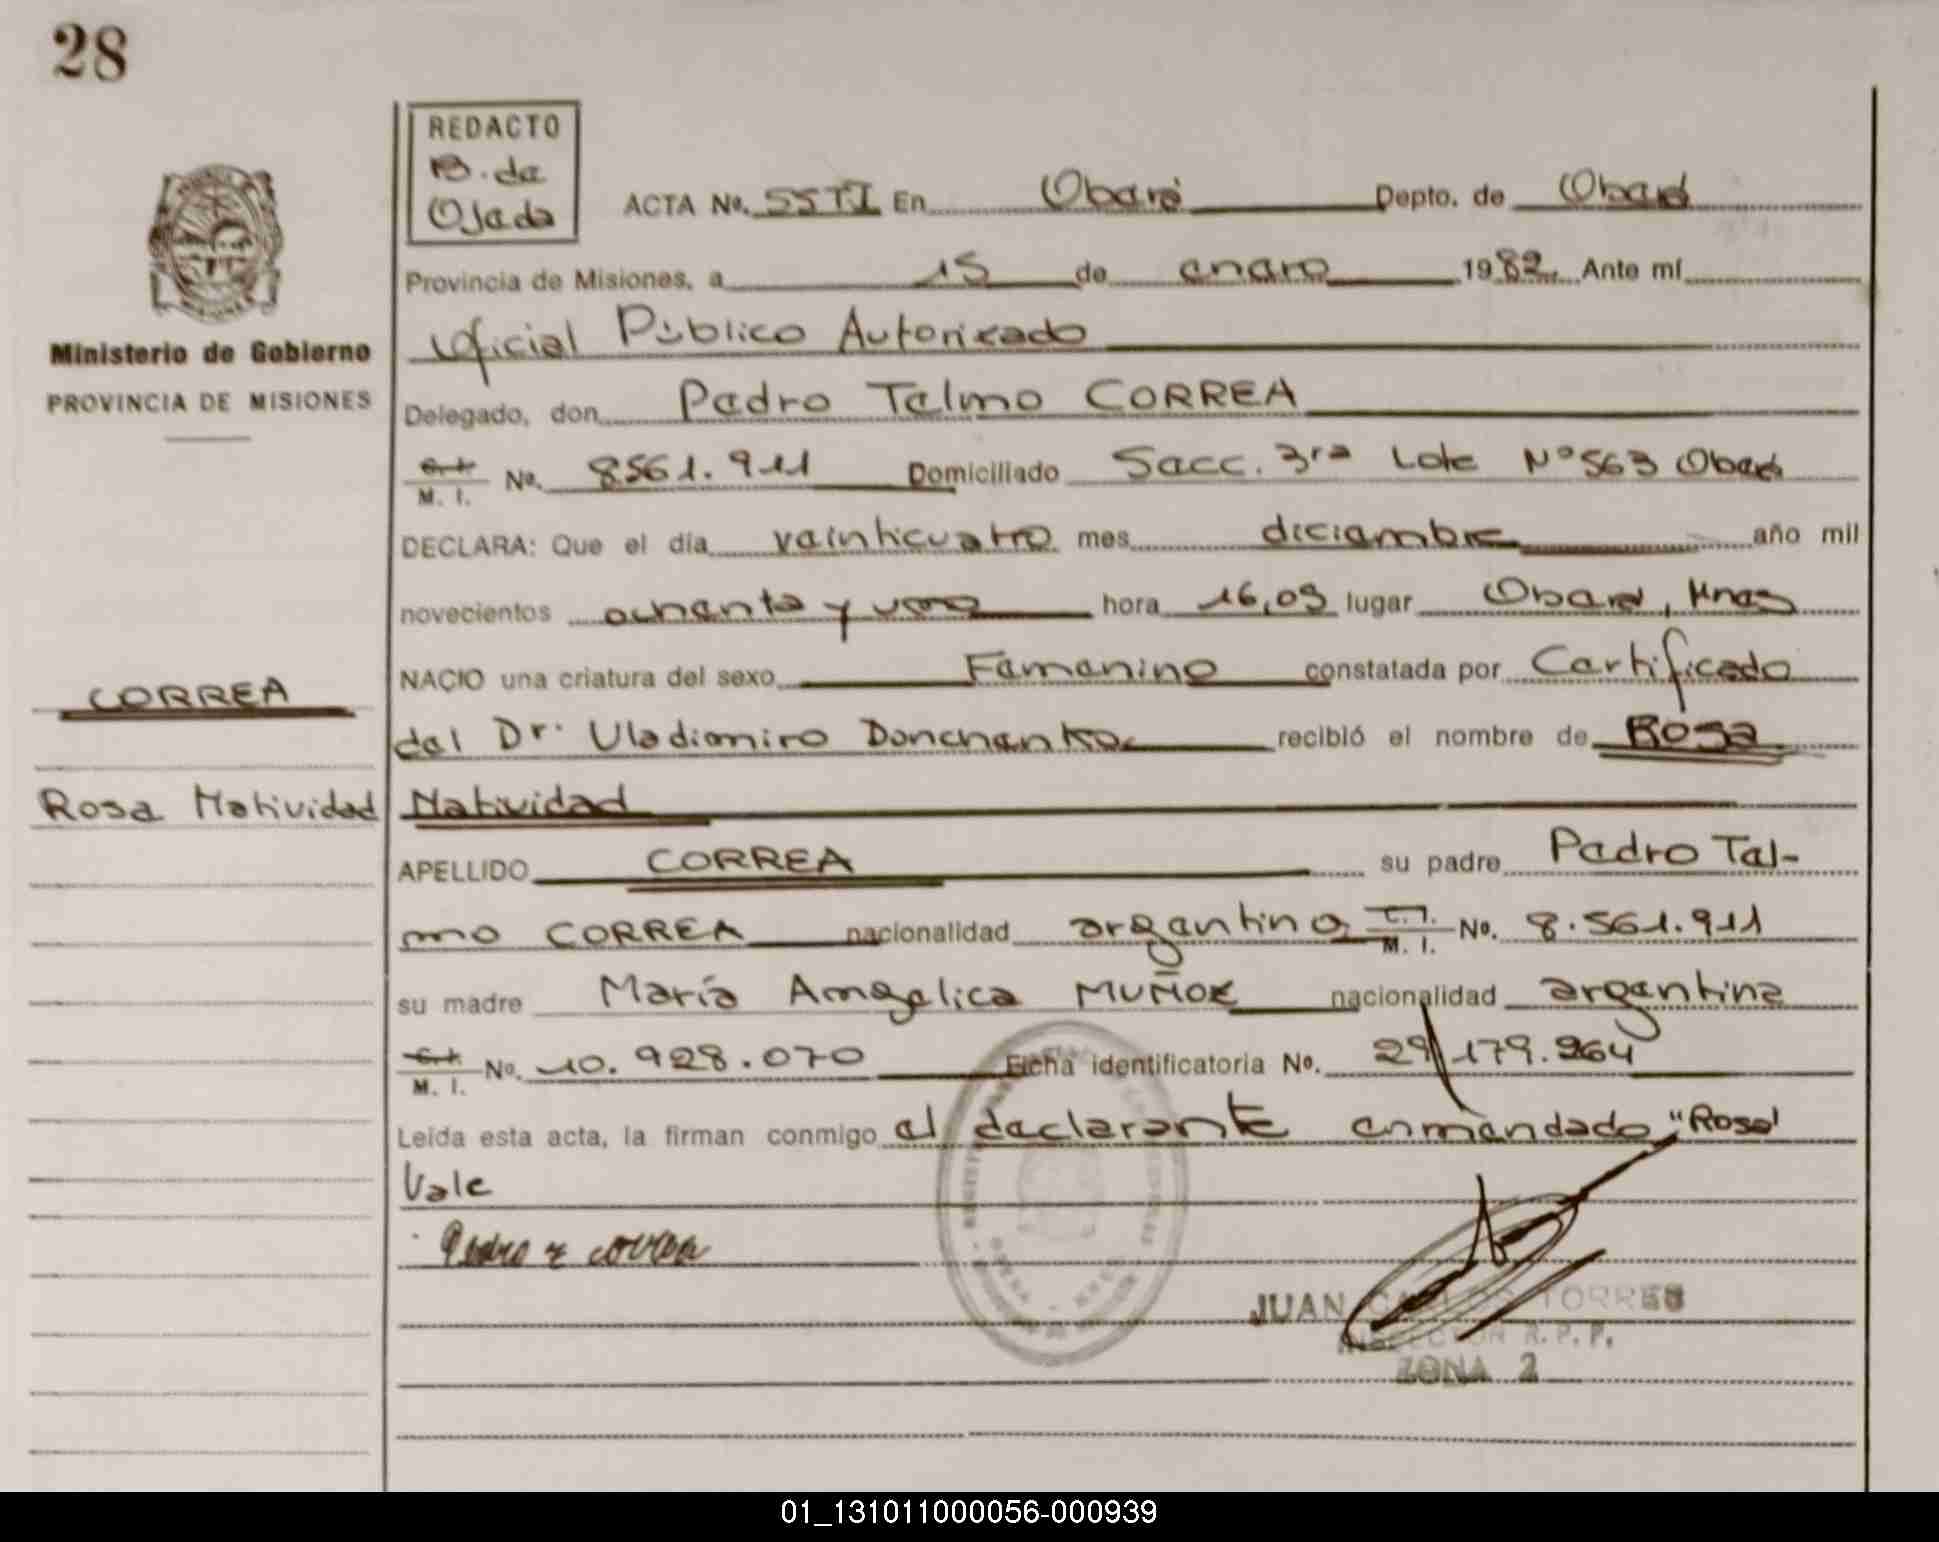 28
REDACTO
B. de
Ojeda
ACTA No. 55 TI En Oberá Depto. de Oberá
Provincia de Misiones, a 15 de enero 1982. Ante mí
Oficial Público Autorizado
Ministerio de Gobierno
PROVINCIA DE MISIONES
Delegado, don Pedro Telmo CORREA
M. I. No. 8561.911 Domiciliado Secc. 3ra Lote Nº 563 Oberá
DECLARA: Que el día veinticuatro mes diciembre año mil
novecientos ochenta y uno hora 16,09 lugar Oberá, Mnes
NACIO una criatura del sexo Femenino constatada por Certificado
CORREA
del Dr. Uladimiro Donchenko recibió el nombre de Rosa
Rosa Natividad
Natividad
APELLIDO CORREA su padre Pedro Tel-
mo CORREA nacionalidad argentino C.I. M. I. No. 8.561.911
su madre María Angelica MUÑOZ nacionalidad argentina
M. I. No. 10.928.070 Ficha identificatoria No. 29/179.964
Leída esta acta, la firman conmigo el declarante enmendado "Rosa"
Vale
Pedro T Correa
JUAN CARLOS TORRES
INSPECTOR R. P. P.
ZONA 2
01_131011000056-000939